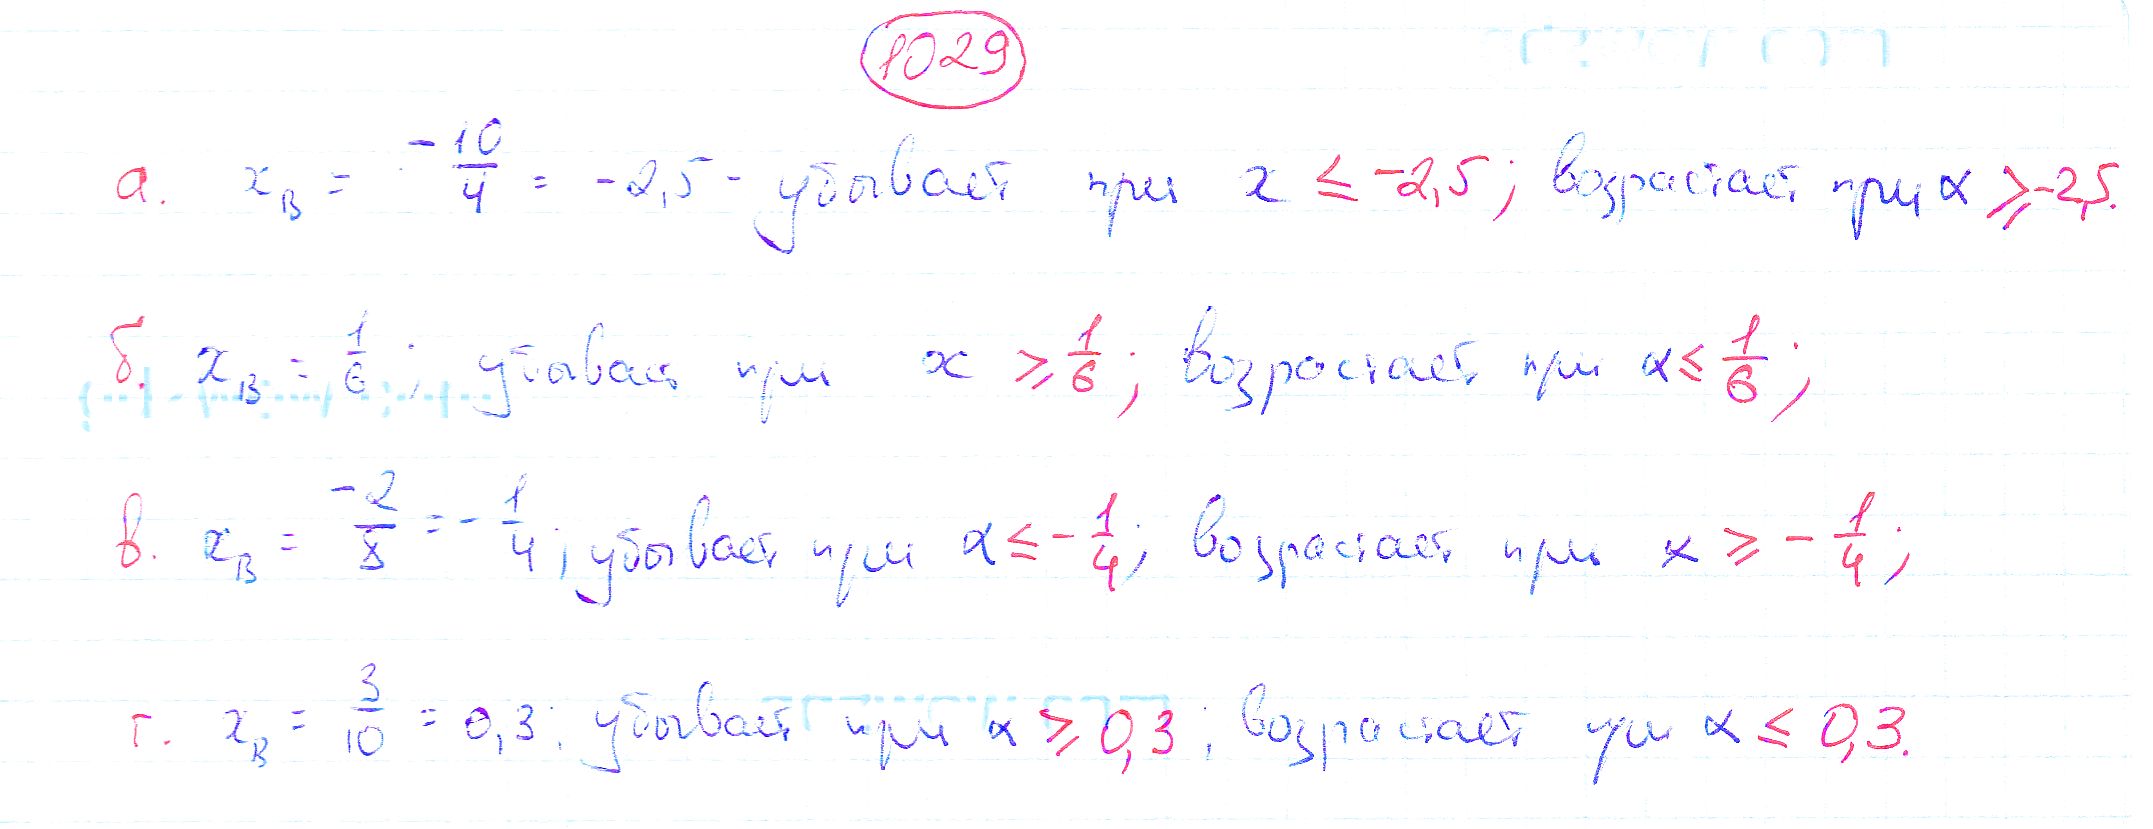 1029
а. x_В = -10/4 = -2,5 - убывает при x ≤ -2,5; возрастает при x ≥ -2,5.
б. x_В = 1/6; убывает при x ≥ 1/6; возрастает при x ≤ 1/6;
в. x_В = -2/8 = -1/4; убывает при x ≤ -1/4; возрастает при x ≥ -1/4;
г. x_В = 3/10 = 0,3; убывает при x ≥ 0,3; возрастает при x ≤ 0,3.